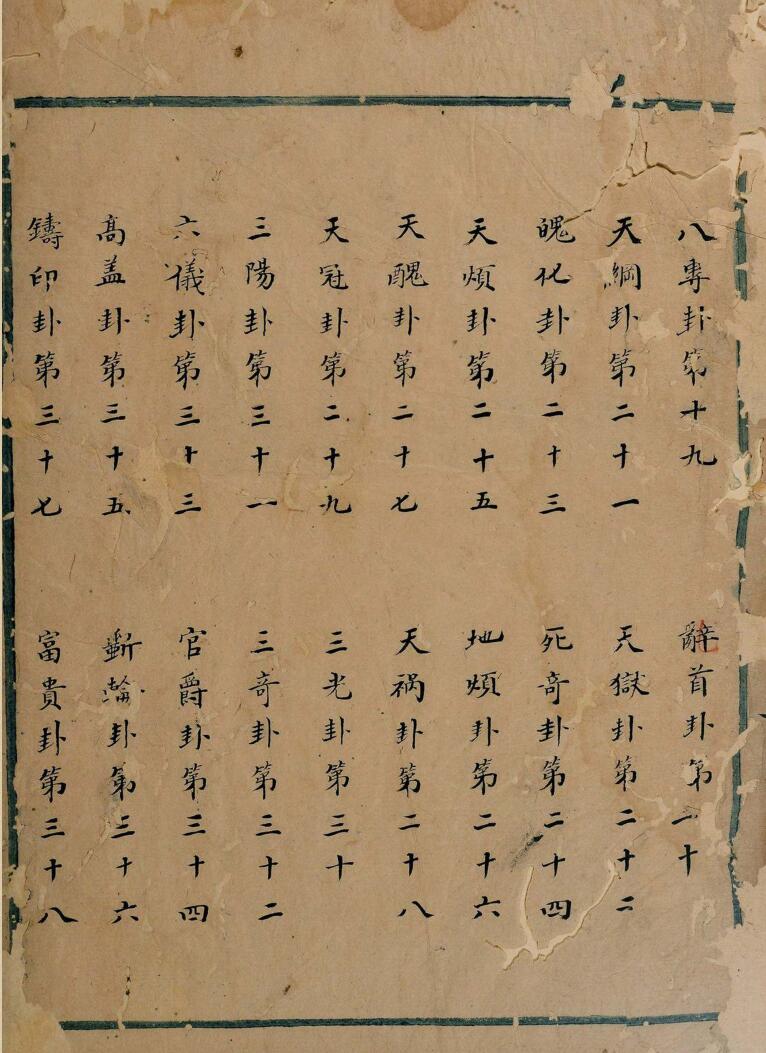 八專卦第十九 辭首卦第二十
天綱卦第二十一 天獄卦第二十二
魄化卦第二十三 死奇卦第二十四
天煩卦第二十五 地煩卦第二十六
天醜卦第二十七 天禍卦第二十八
天冠卦第二十九 三光卦第三十
三陽卦第三十一 三奇卦第三十二
六儀卦第三十三 官爵卦第三十四
高盖卦第三十五 斲輪卦第三十六
鑄印卦第三十七 富貴卦第三十八